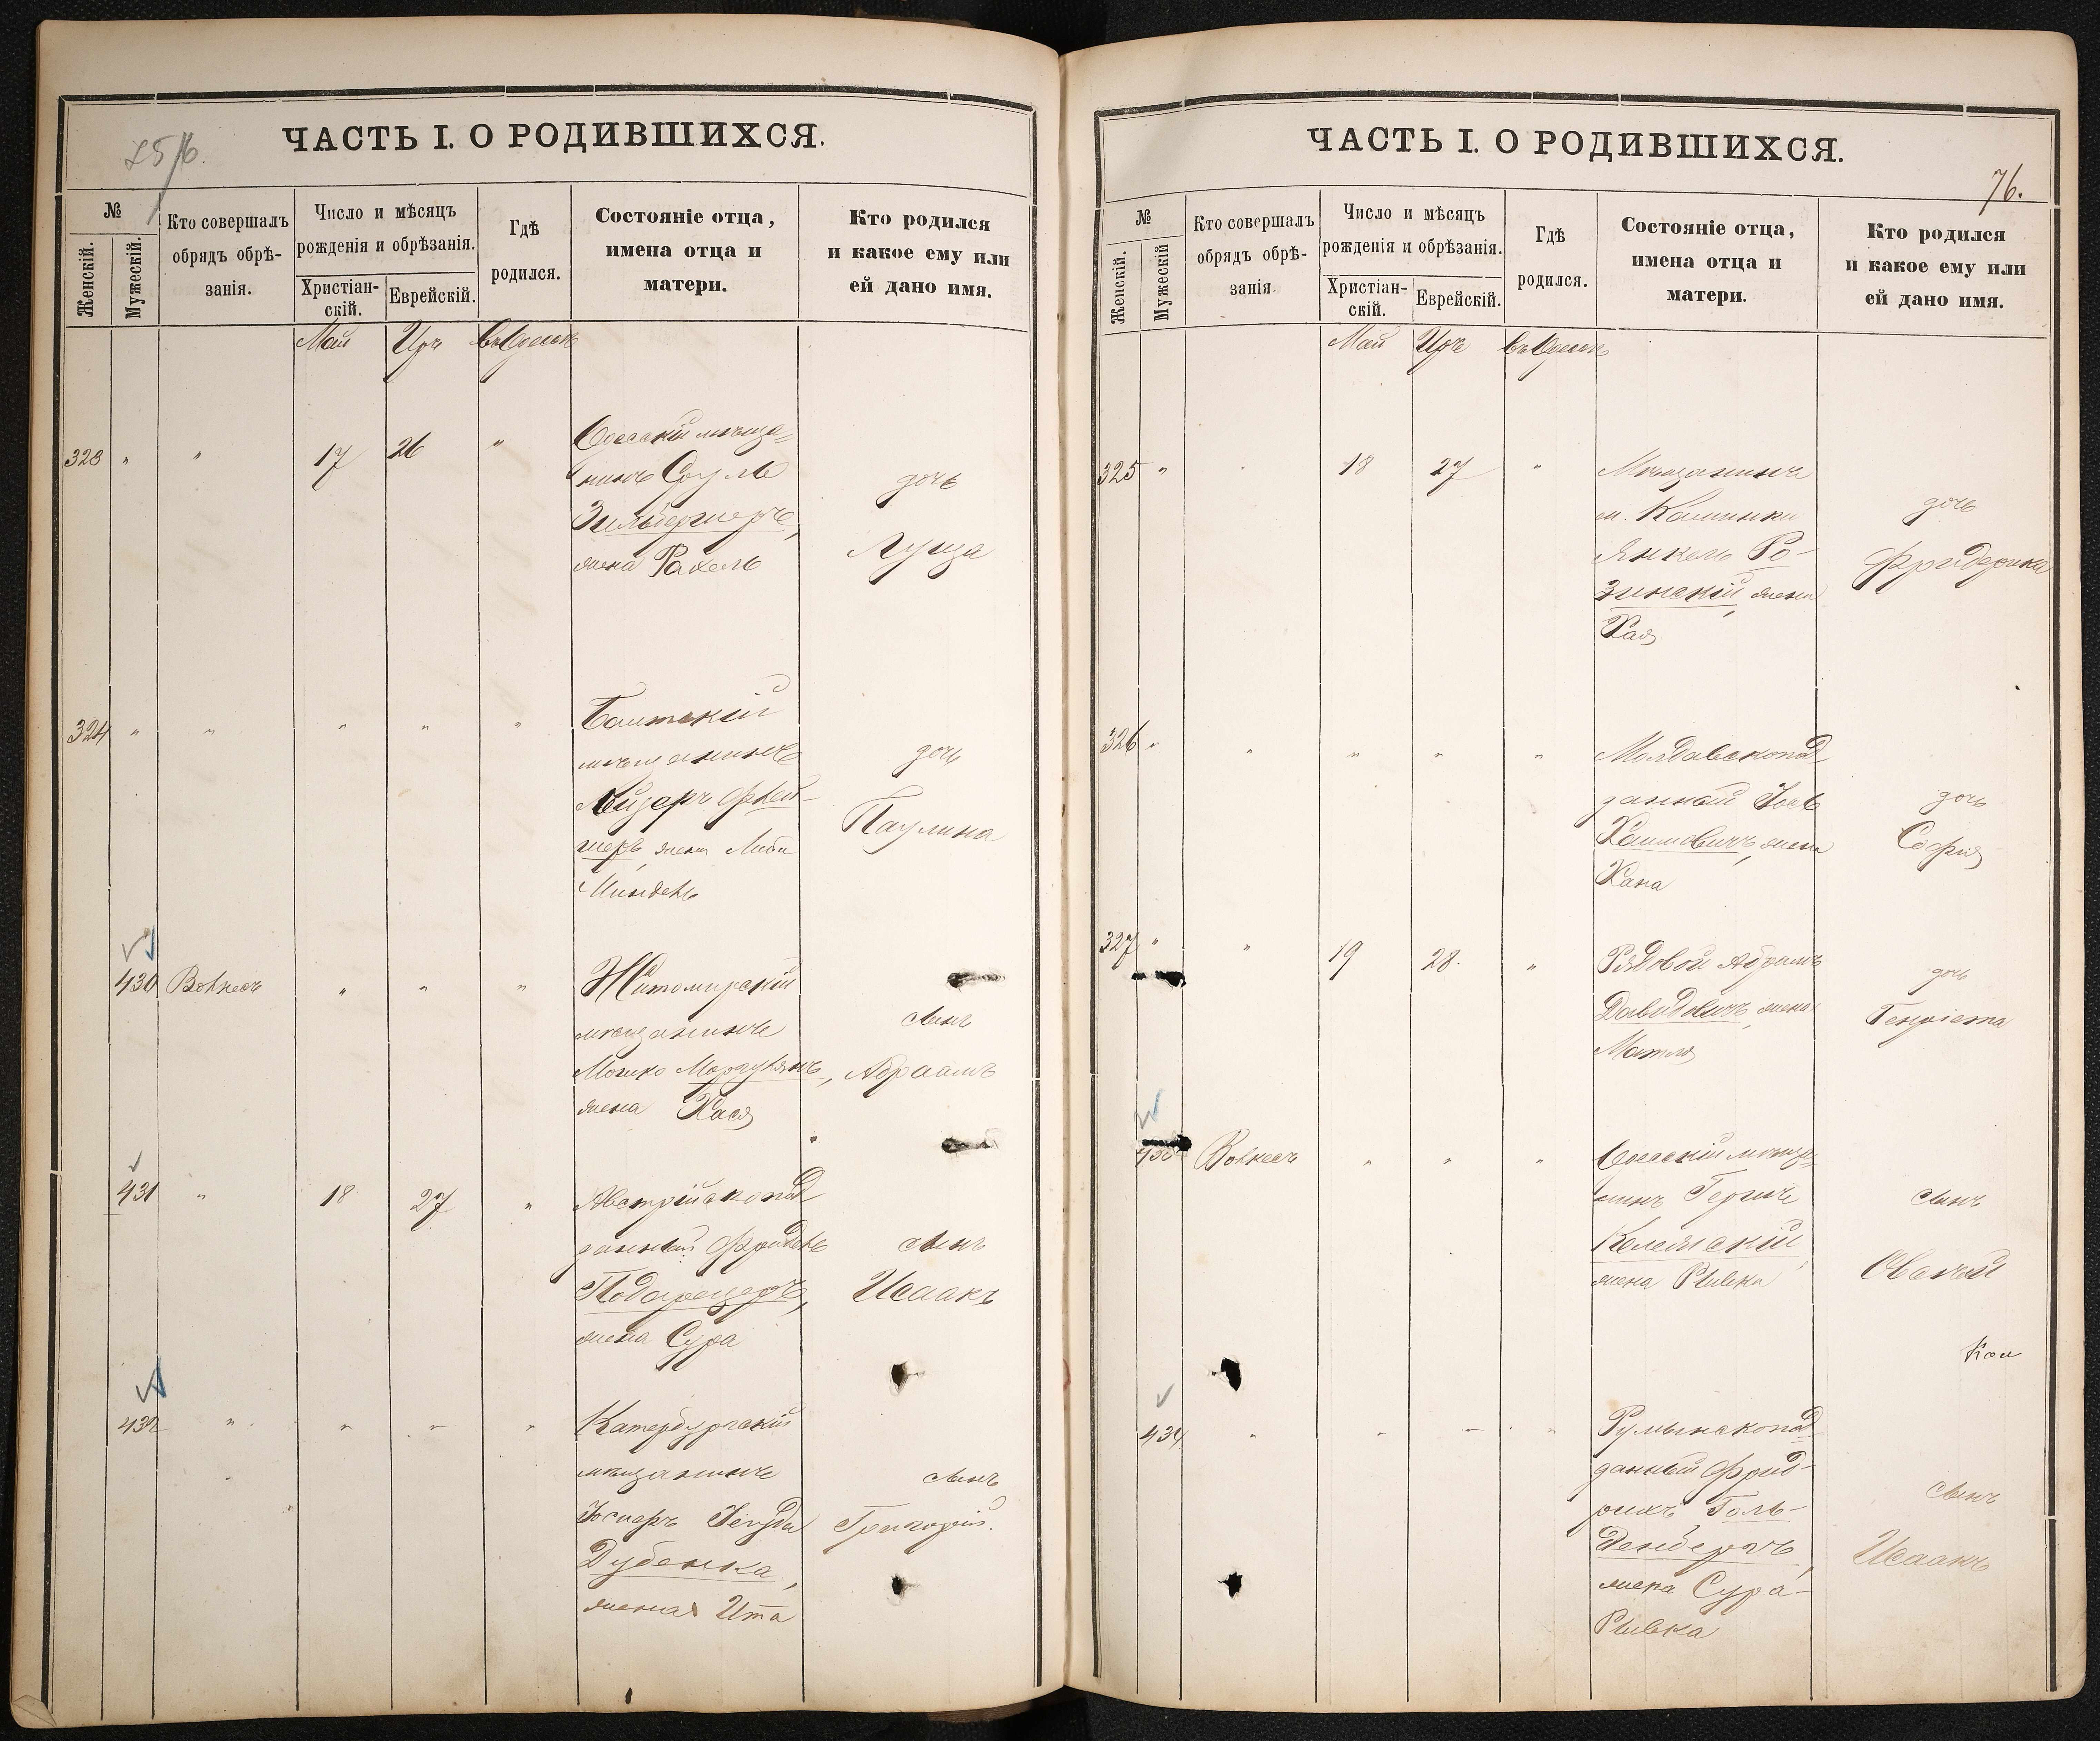 ЧАСТЬ I. О РОДИВШИХСЯ.
№
Женскій.
Мужескій.
Кто совершалъ
обрядъ обрѣ-
занія.
Число и мѣсяцъ
рожденія и обрѣзанія.
Христіан-
скій.
Еврейскій.
Гдѣ
родился.
Состояніе отца,
имена отца и
матери.
Кто родился
и какое ему или
ей дано имя.
Май Иръ въ Одессѣ
323 " " 17 26 "
Одесскій мѣща-
нинъ Сруль
Зильбершеръ,
жена Рахель
дочь
Луиза
324 " " " " "
Балтскій
мѣщанинъ
Лейзеръ Флей-
шеръ, жена Либа
Миндель
дочь
Паулина
430 Волкесъ " " "
Житомирскій
мѣщанинъ
Мошко Моргулянъ,
жена Хася
сынъ
Абраамъ
431 " 18 27 "
Австрійскопод
данный Фридель
Подгорецеръ,
жена Сура
сынъ
Исаакъ
432 " " " "
Катербургскій
мѣщанинъ
Іосперъ Іегуда
Дубенка,
жена Ита
сынъ
Григорій.
ЧАСТЬ I. О РОДИВШИХСЯ.
76.
№
Женскій.
Мужескій
Кто совершалъ
обрядъ обрѣ-
занія
Число и мѣсяцъ
рожденія и обрѣзанія.
Христіан-
скій.
Еврейскій.
Гдѣ
родился.
Состояніе отца,
имена отца и
матери.
Кто родился
и какое ему или
ей дано имя.
Май Иръ въ Одессѣ
325 " " 18 27 "
Мѣщанинъ
м. Каминки
Янкель Ро-
зинскій, жена
Хая
дочь
Фридерика
326 " " " " "
Молдавскопод
данный Іосъ
Хаимовичъ, жена
Хана
дочь
Софія
327 " " 19 28. "
Рядовой Абрамъ
Давидовичъ, жена
Матля
дочь
Генріета
Волкесъ " " "
Одесскій мѣща-
нинъ Гершъ
Келемскій,
жена Рывка
сынъ
Овсѣй
434 " " " "
Румынскопод
данный Фрид-
рихъ Голь-
денбергъ,
жена Сура-
Рывка
сынъ
Исаакъ